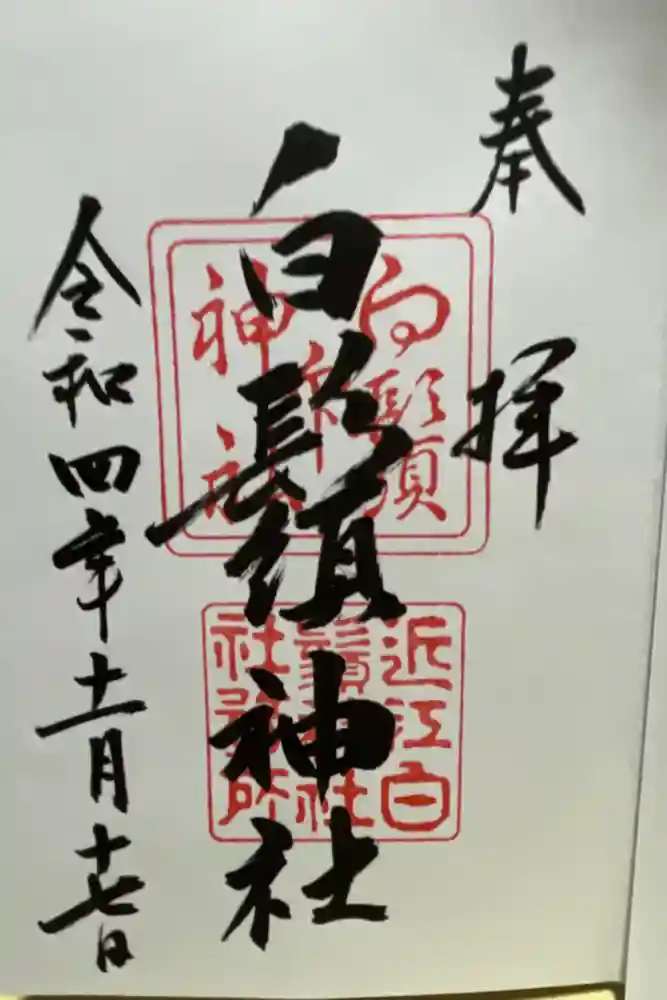 奉拝
白鬚神社
令和四年十一月十七日
白鬚
神社
近江白
鬚神社
社務所